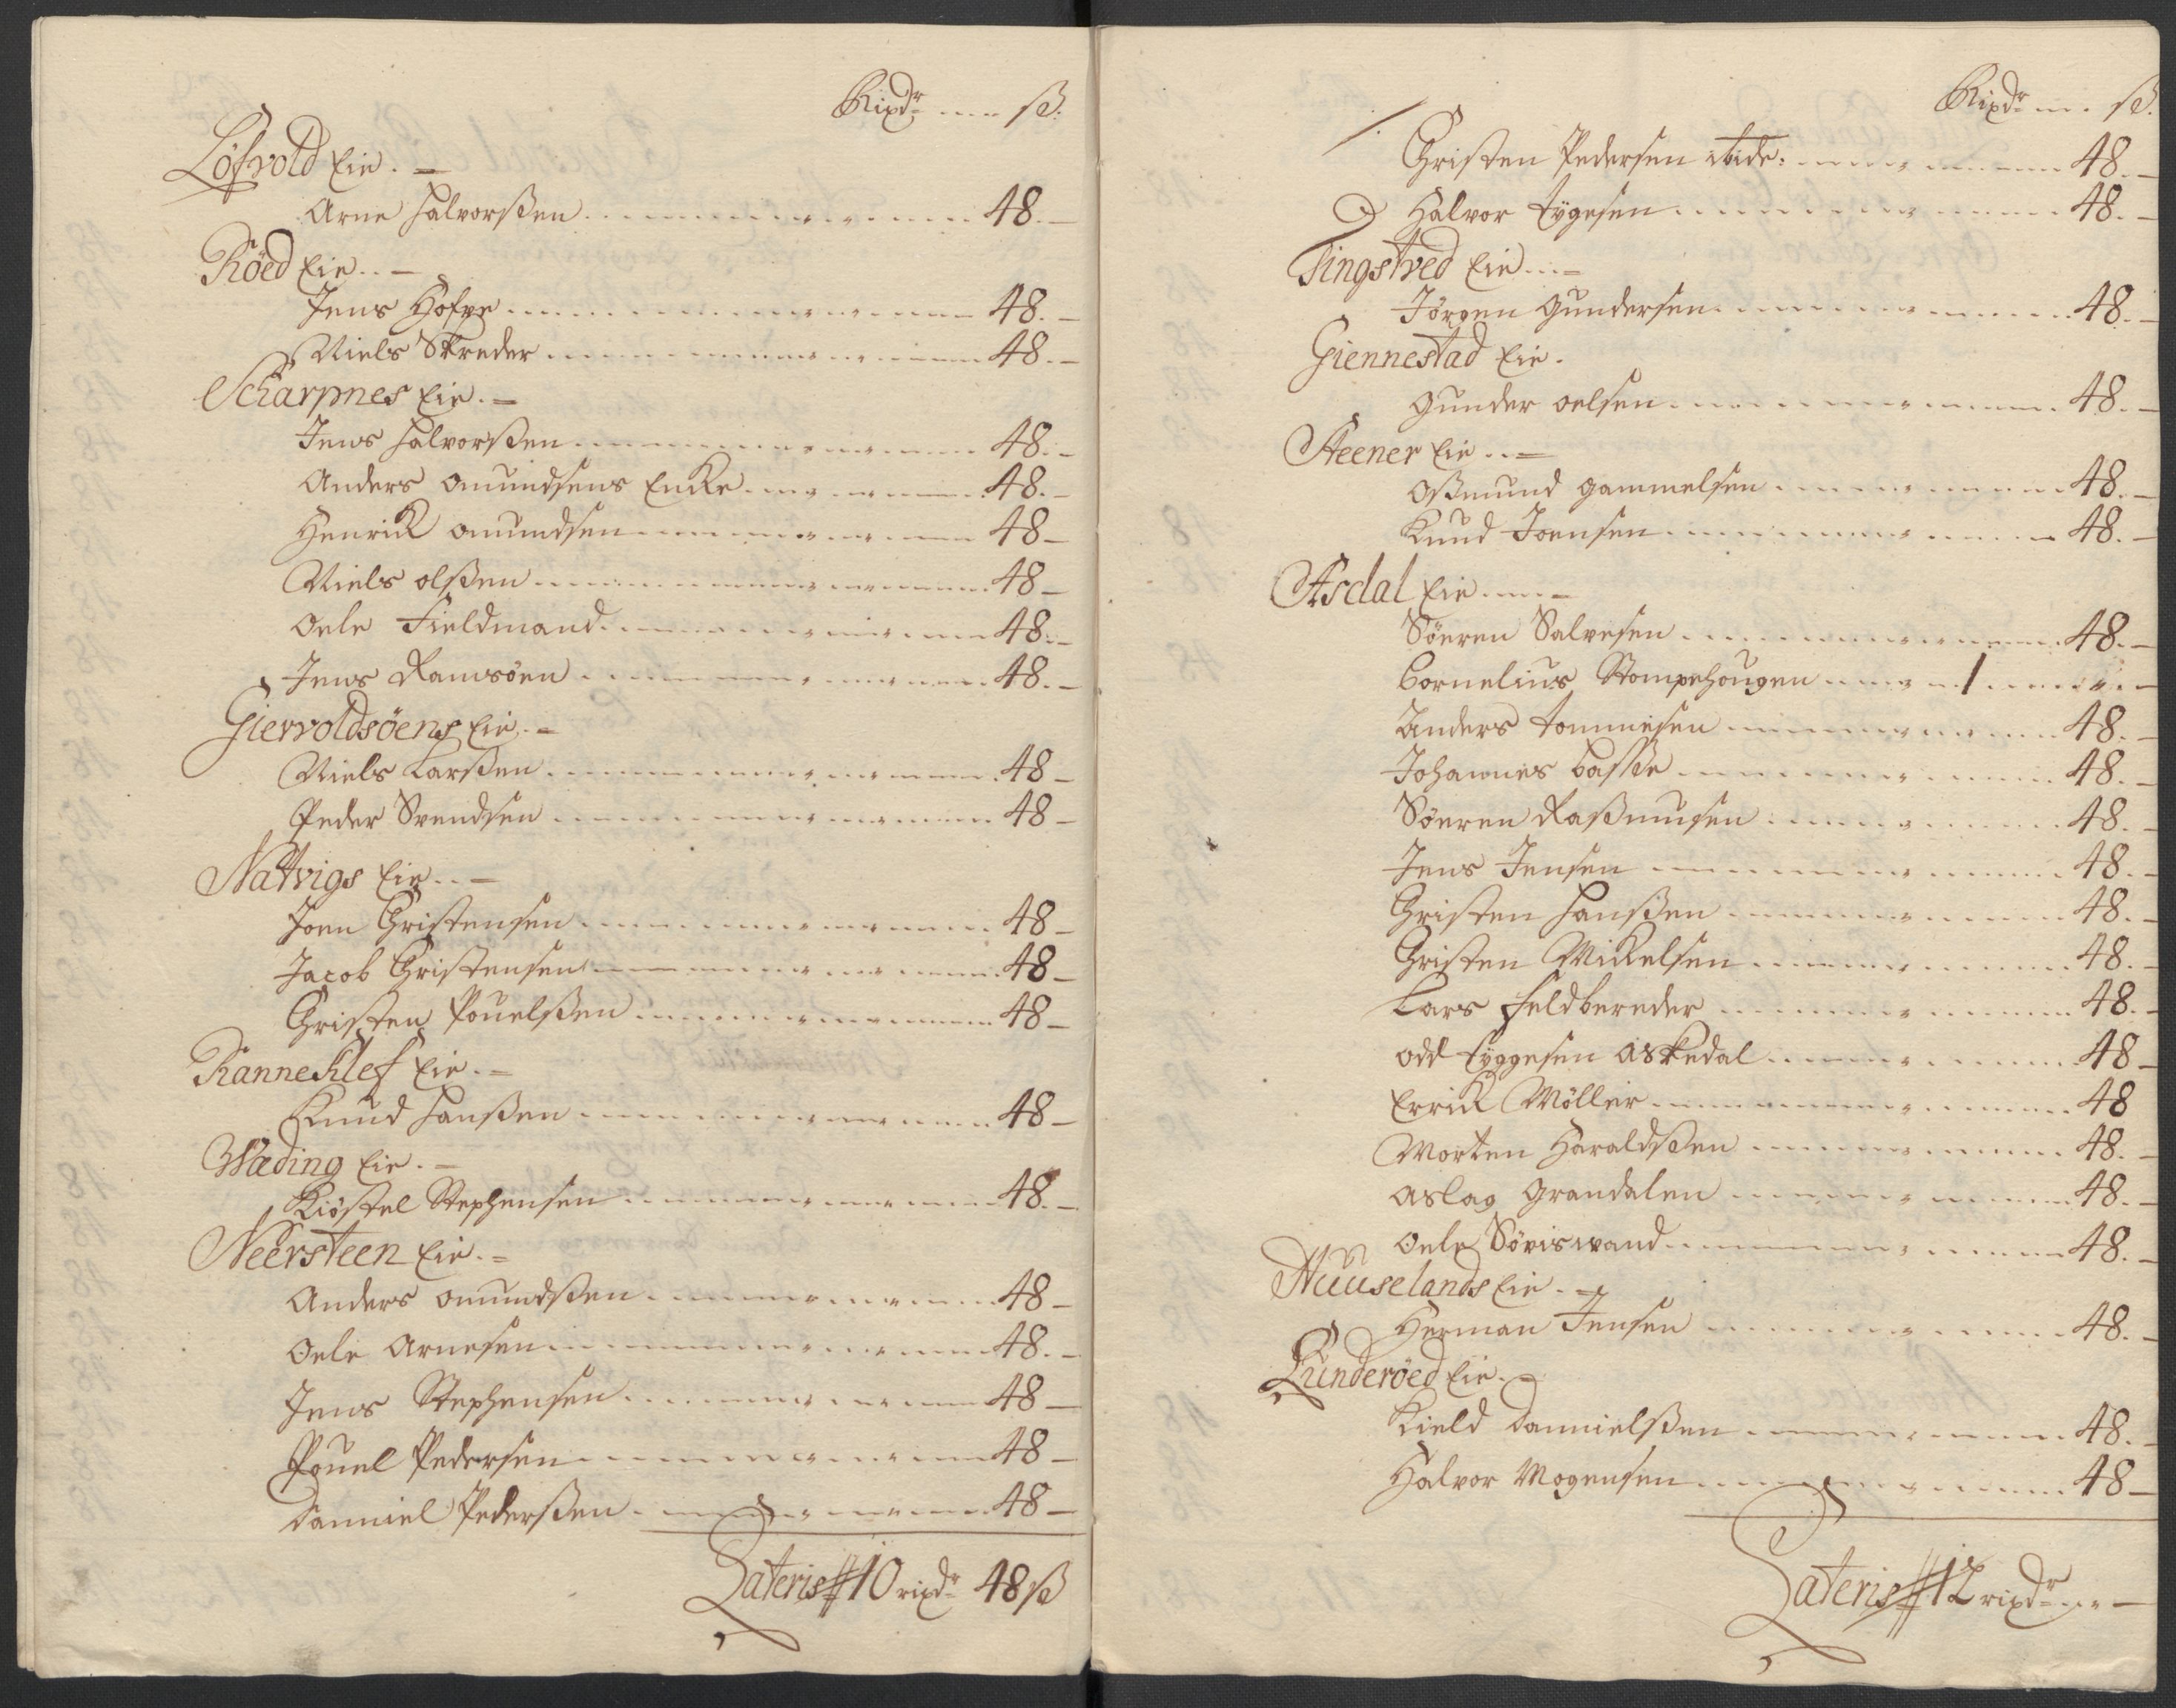 Rixdr ß.
Löfvold Eie.
Arne Halvorßen 48.
Röed Eie.
Jens Hofve 48.
Niels Skreder 48.
Scharpnes Eie.
Jens Halvorßen 48.
Anders Omundsens Encke 48.
Henrick Omundsen 48
Niels Olßen 48
Oele Fieldmand 48.
Jens Ramsöen 48.
Giervoldsöens Eie.
Niels Larßen 48
Peder Svendsen 48
Natvigs Eie.
Joen Christensen 48
Jacob Christensen 48
Christen Pouelßen 48
Ranneklef Eie.
Knud Hanßen 48
Wæding Eie.
Kiöstel Stephensen 48.
Neersteen Eie.
Anders Omundßen 48
Oele Arnesen 48.
Jens Stephensen 48
Pouel Pedersen 48
Danniel Pederßen 48
Lateris # 10 rixdr 48 ß
Rixdr ß.
Christen Pedersen ibide: 48.
Halvor Tygesen 48.
Tingstved Eie
Jörgen Gundersen 48.
Giennestad Eie.
Gunder Oelsen 48.
Steener Eie
Oßmund Gammelsen 48.
Knud Joensen 48.
Asdal Eie
Söeren Salvesen 48.
Cornelius Stompehougen 1
Anders Tommesen 48.
Johannes Basse 48.
Söeren Raßmusen 48.
Jens Jensen 48.
Christen Hanßen 48.
Christen Mickelsen 48.
Lars Feldbereder 48.
Odd Tyggesen Askedal 48
Errick Möller 48
Morten Haraldßen 48.
Aslag Grandalen 48.
Oele Söviswand 48.
Nuuselands Eie.
Herman Jensen 48.
Lunderöed Eie.
Kield Dannielßen 48.
Halvor Mogensen 48
Lateris # 12 rixdr